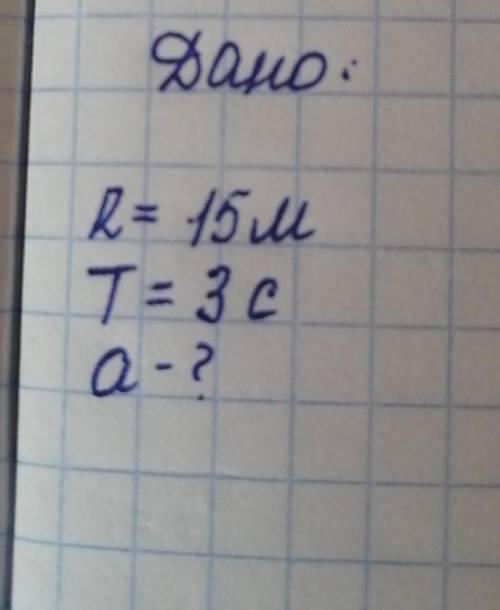 Дано:
R = 15 м
T = 3 с
a - ?